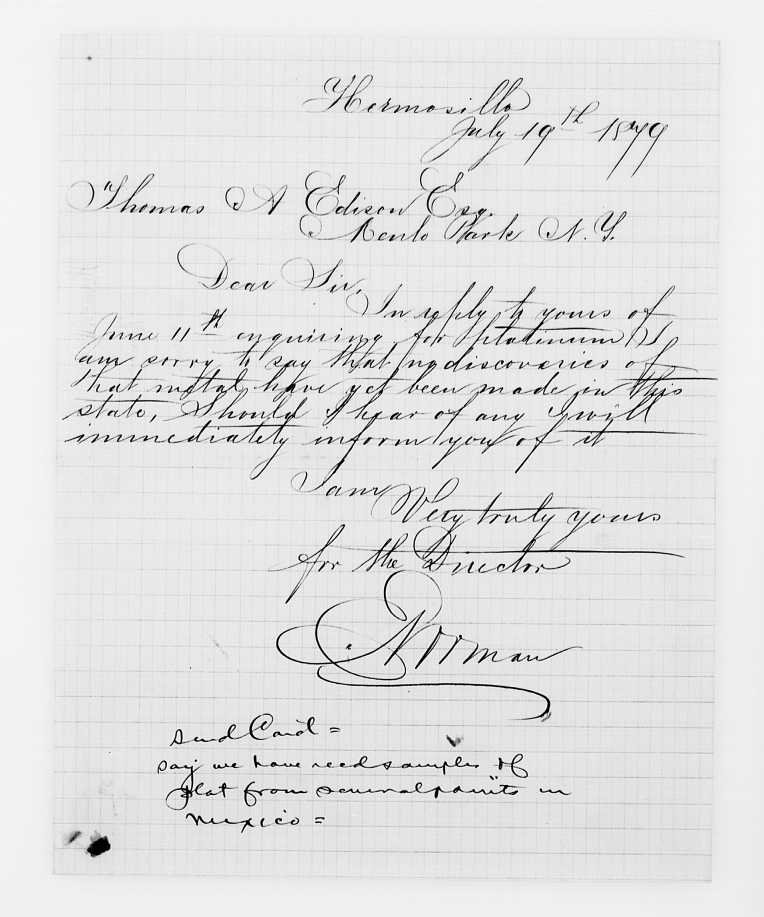 Hermosillo
July 19th 1879
Thomas A Edison Esq.
Menlo Park N.Y.
Dear Sir,
In reply to yours of
June 11th enquiring for platinum, I
am sorry to say that no discoveries of
that metal have yet been made in this
state, Should I hear of any I will
immediately inform you of it
I am
Very truly yours
for the Director
Norman
Send Card =
say we have recd samples of
plat from several points in
Mexico =